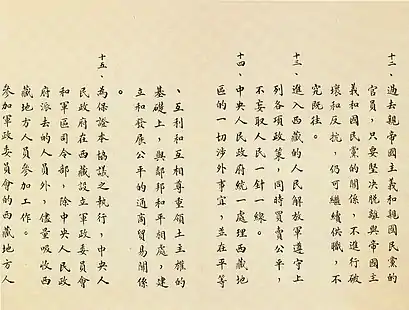 十二、過去親帝國主義和親國民黨的
官員，只要堅决脱離與帝國主
義和國民黨的關係，不進行破
壞和反抗，仍可繼續供職，不
究既往。
十三、進入西藏的人民解放軍遵守上
列各項政策，同時買賣公平，
不妄取人民一針一線。
十四、中央人民政府統一處理西藏地
區的一切涉外事宜，並在平等
、互利和互相尊重領土主權的
基礎上，與鄰邦和平相處，建
立和發展公平的通商貿易關係
。
十五、為保證本協議之執行，中央人
民政府在西藏設立軍政委員會
和軍區司令部，除中央人民政
府派去的人員外，儘量吸收西
藏地方人員參加工作。
參加軍政委員會的西藏地方人